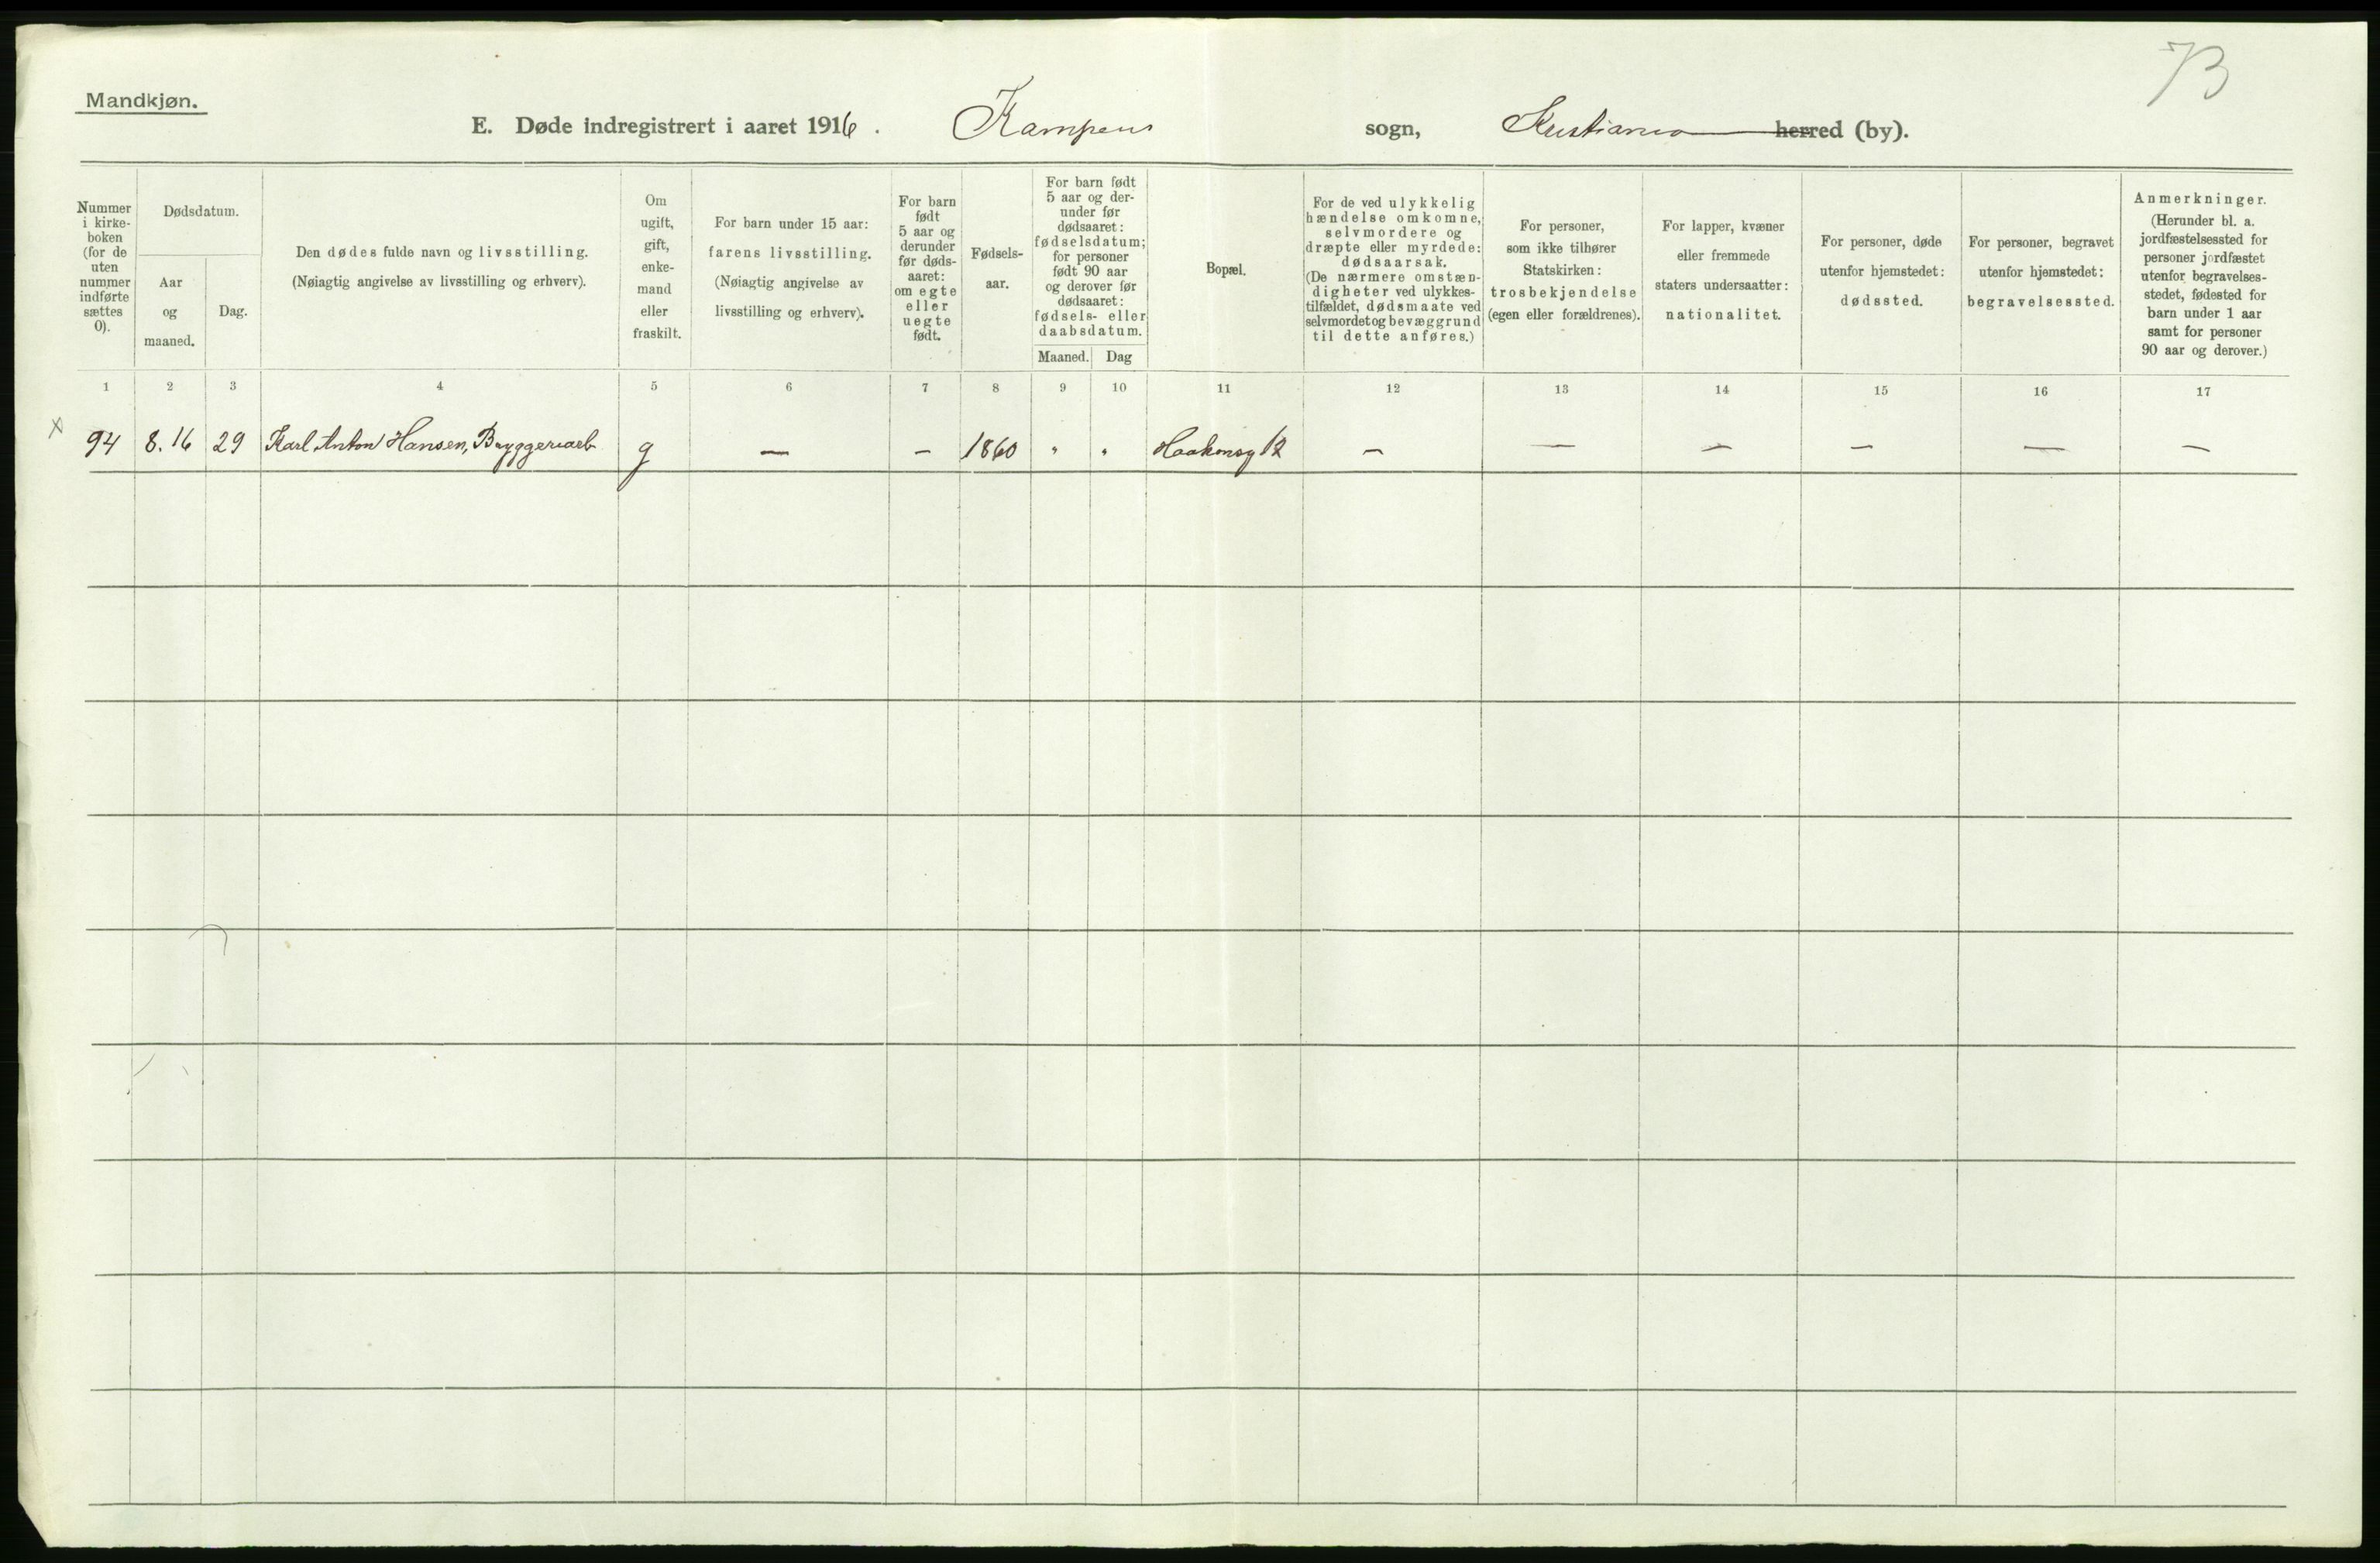 73
Mandkjøn.
E. Døde indregistrert i aaret 1916. Kampens sogn, Kristiania herred (by).
Nummer i kirke-boken (for de uten nummer indførte sættes 0).
Dødsdatum.
Aar og maaned.
Dag.
Den dødes fulde navn og livsstilling.
(Nøiagtig angivelse av livsstilling og erhverv).
Om ugift, gift, enke-mand eller fraskilt.
For barn under 15 aar:
farens livsstilling.
(Nøiagtig angivelse av
livsstilling og erhverv).
For barn født 5 aar og derunder før døds-aaret: om egte eller uegte født.
Fødsels-aar.
For barn født
5 aar og der-
under før
dødsaaret:
fødselsdatum;
for personer
født 90 aar
og derover før
dødsaaret:
fødsels- eller
daabsdatum.
Maaned. Dag
Bopæl.
For de ved ulykkelig
hændelse omkomne,
selvmordere og
dræpte eller myrdede:
dødsaarsak.
(De nærmere omstæn-
digheter ved ulykkes-
tilfældet, dødsmaate ved
selvmordet og bevæggrund
til dette anføres.)
For personer,
som ikke tilhører
Statskirken:
trosbekjendelse
(egen eller forældrenes).
For lapper, kvæner
eller fremmede
staters undersaatter:
nationalitet.
For personer, døde
utenfor hjemstedet:
dødssted.
For personer, begravet
utenfor hjemstedet:
begravelsessted.
Anmerkninger.
(Herunder bl. a.
jordfæstelsessted for
personer jordfæstet
utenfor begravelses-
stedet, fødested for
barn under 1 aar
samt for personer
90 aar og derover.)
1 2 3 4 5 6 7 8 9 10 11 12 13 14 15 16 17
x 94 8.16 29 Karl Anton Hansen, Bryggeriarb g — — 1860 " " Haakonsg 12 — — — — — —